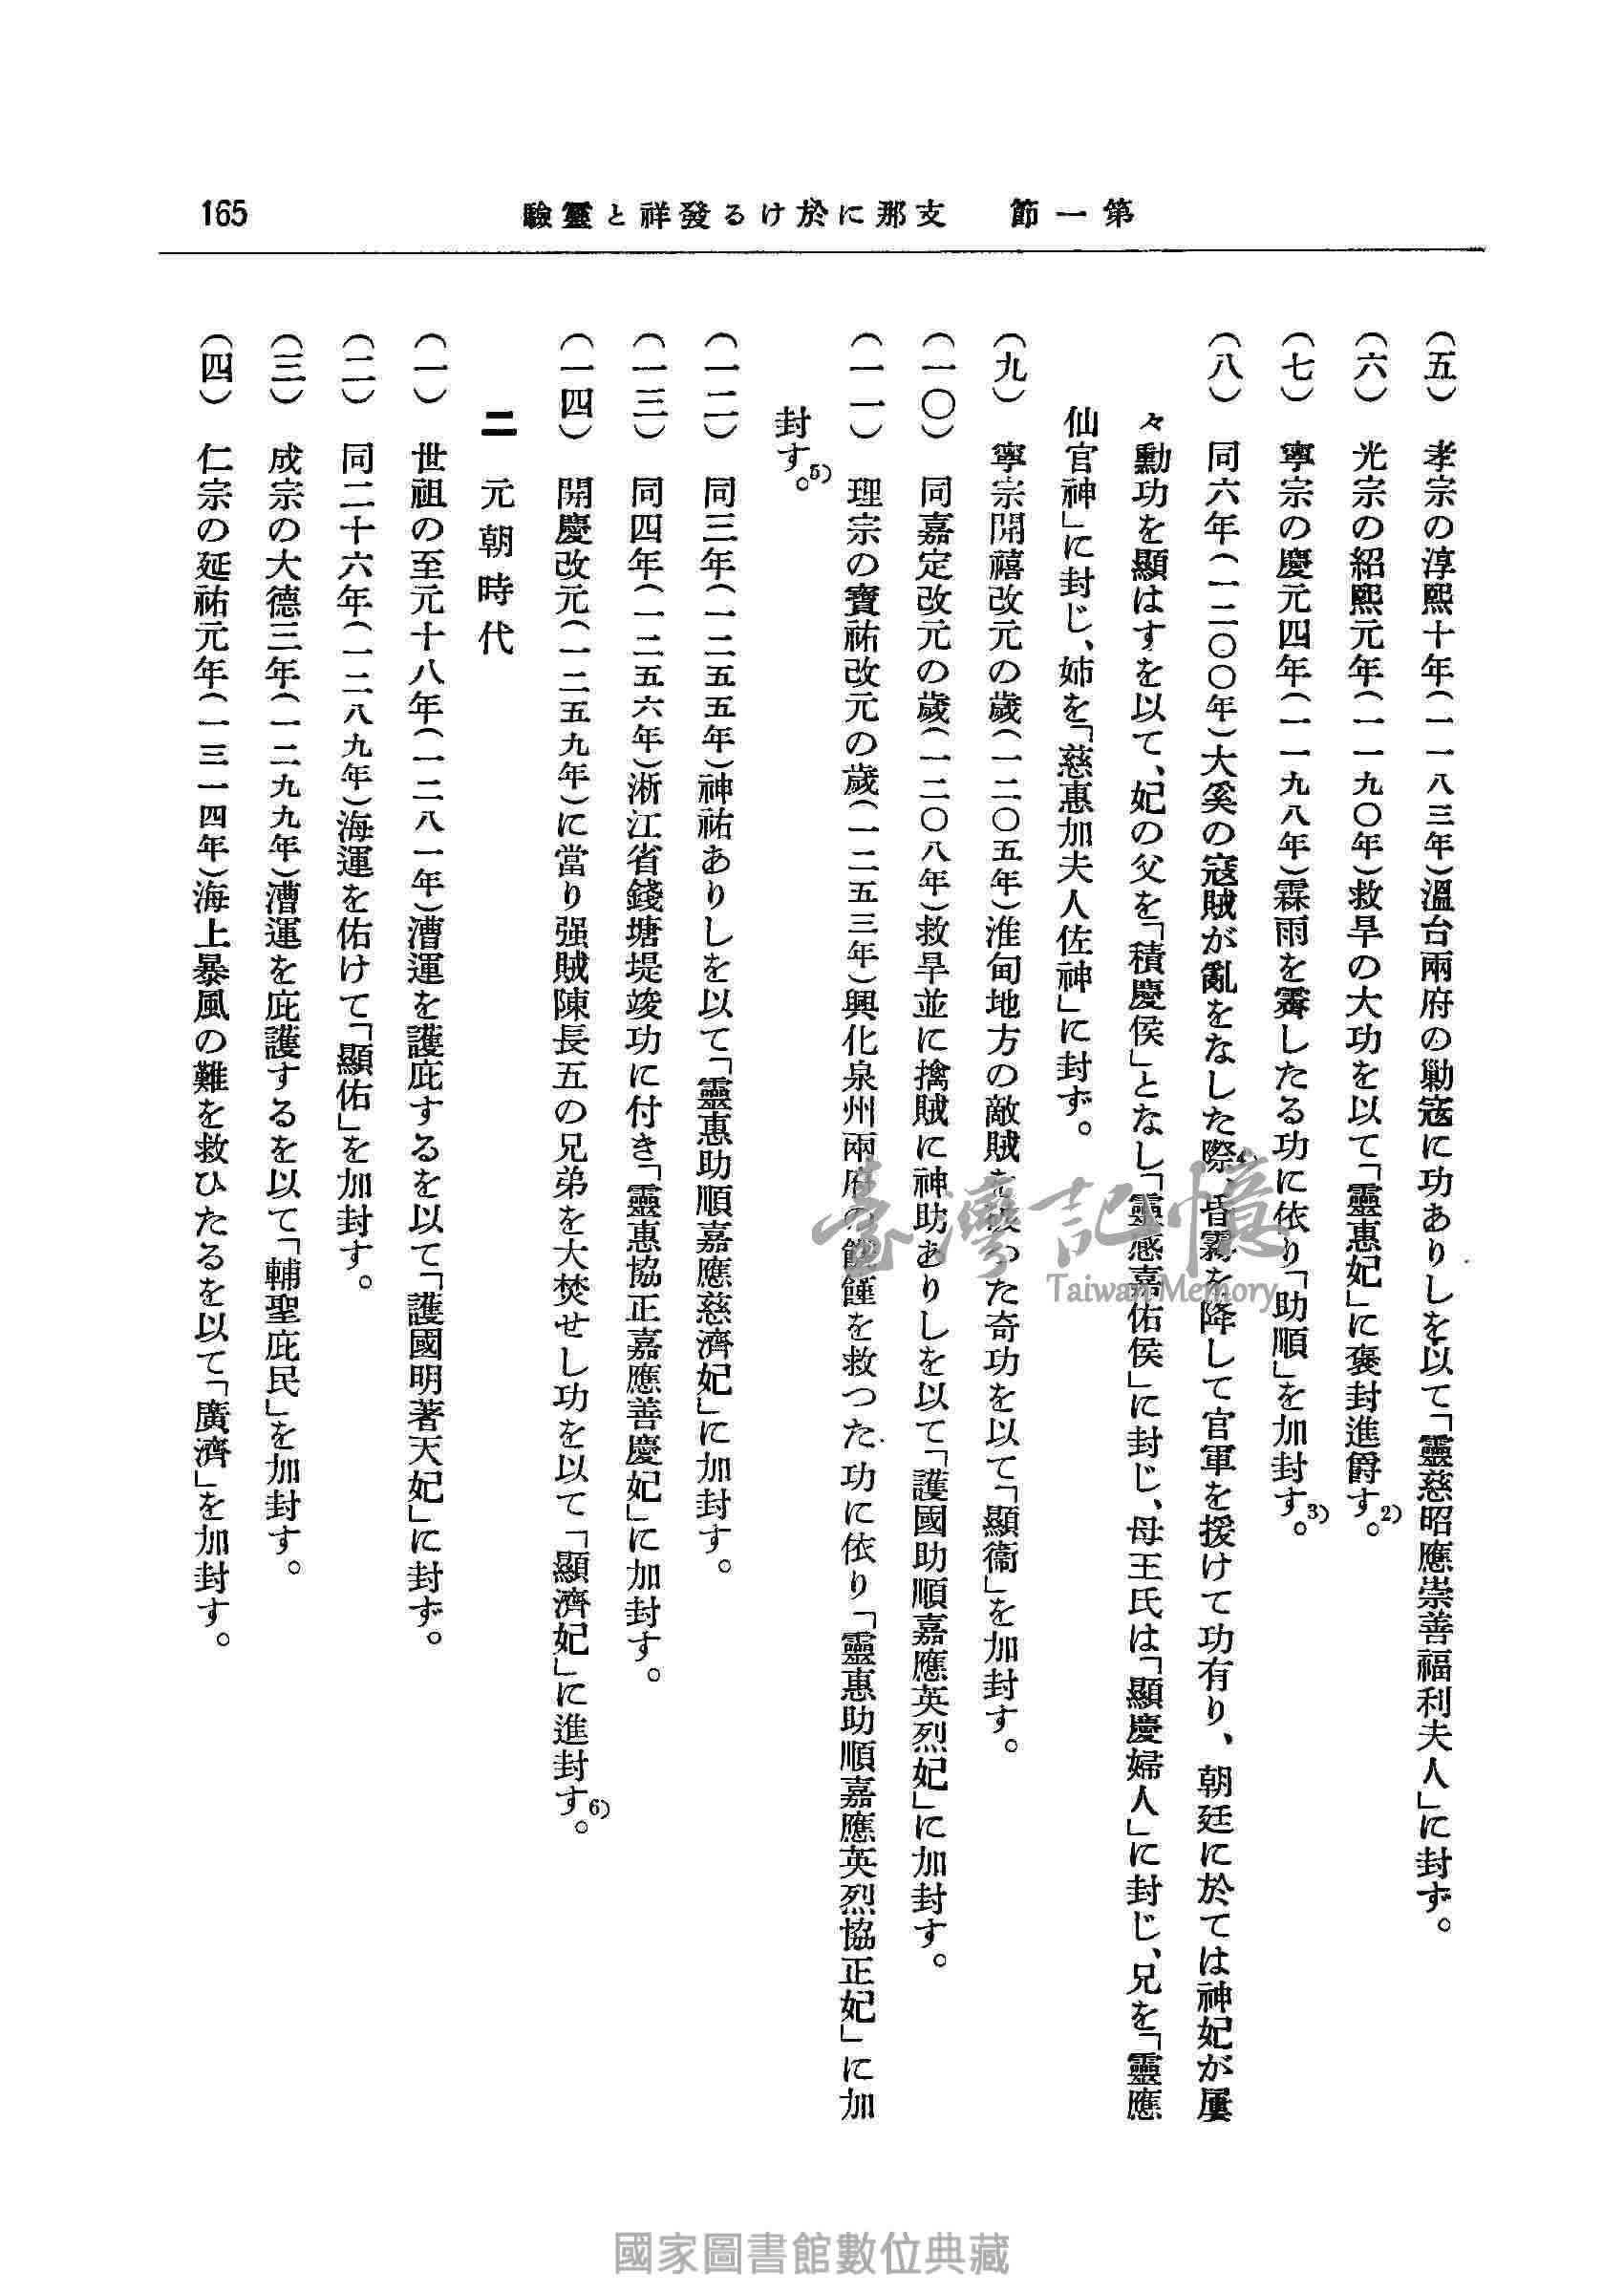 第一節　支那に於ける發祥と靈驗
165
(五)　孝宗の淳熙十年(一一八三年)溫台兩府の勦寇に功ありしを以て「靈慈昭應崇善福利夫人」に封ず。
(六)　光宗の紹熙元年(一一九〇年)救旱の大功を以て「靈惠妃」に褒封進爵す。2)
(七)　寧宗の慶元四年(一一九八年)霖雨を霽したる功に依り「助順」を加封す。3)
(八)　同六年(一二〇〇年)大奚の寇賊が亂をなした際、4)昏霧を降して官軍を援けて功有り、朝廷に於ては神妃が屢
々勳功を顯はすを以て、妃の父を「積慶侯」となし「靈感嘉佑侯」に封じ、母王氏は「顯慶婦人」に封じ、兄を「靈應
仙官神」に封じ、姉を「慈惠加夫人佐神」に封ず。
(九)　寧宗開禧改元の歲(一二〇五年)淮甸地方の敵賊を つた奇功を以て「顯衞」を加封す。
(一〇)　同嘉定改元の歲(一二〇八年)救旱並に擒賊に神助ありしを以て「護國助順嘉應英烈妃」に加封す。
(一一)　理宗の寶祐改元の歲(一二五三年)興化泉州兩府の饑饉を救つた功に依り「靈惠助順嘉應英烈協正妃」に加
封す。5)
(一二)　同三年(一二五五年)神祐ありしを以て「靈惠助順嘉應慈濟妃」に加封す。
(一三)　同四年(一二五六年)淅江省錢塘堤竣功に付き「靈惠協正嘉應善慶妃」に加封す。
(一四)　開慶改元(一二五九年)に當り强賊陳長五の兄弟を大焚せし功を以て「顯濟妃」に進封す。6)
二　元朝時代
(一)　世祖の至元十八年(一二八一年)漕運を護庇するを以て「護國明著天妃」に封ず。
(二)　同二十六年(一二八九年)海運を佑けて「顯佑」を加封す。
(三)　成宗の大德三年(一二九九年)漕運を庇護するを以て「輔聖庇民」を加封す。
(四)　仁宗の延祐元年(一三一四年)海上暴風の難を救ひたるを以て「廣濟」を加封す。
臺灣記憶
Taiwan Memory
國家圖書館數位典藏